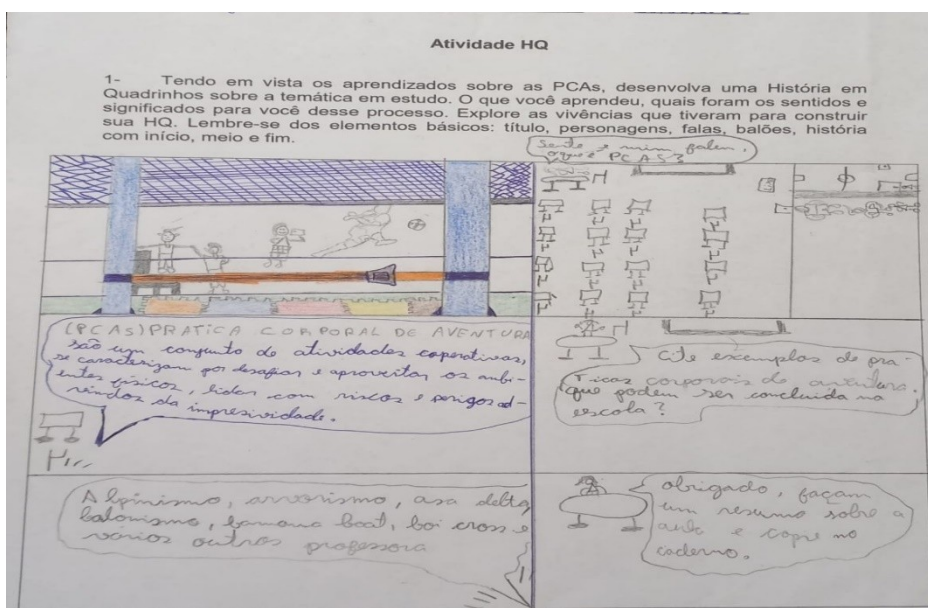 Atividade HQ
1- Tendo em vista os aprendizados sobre as PCAs, desenvolva uma História em
Quadrinhos sobre a temática em estudo. O que você aprendeu, quais foram os sentidos e
significados para você desse processo. Explore as vivências que tiveram para construir
sua HQ. Lembre-se dos elementos básicos: título, personagens, falas, balões, história
com início, meio e fim.
mim falem,
PCAS?
(PCAs) PRATICA CORPORAL DE AVENTURA
são um conjunto de atividades coperativas,
se caracterizam por desafiar e aproveitar os ambi-
entes físicos, lidar com riscos e perigos ad-
vindos da impresividade.
Cite exemplos de pra-
ticas corporais de aventura
que podem ser concluida na
escola?
Alpinismo, arvorismo, asa delta
balonismo, boi cross e
vários outros professora
obrigado, façam
um resumo sobre a
aula e copie no
caderno.